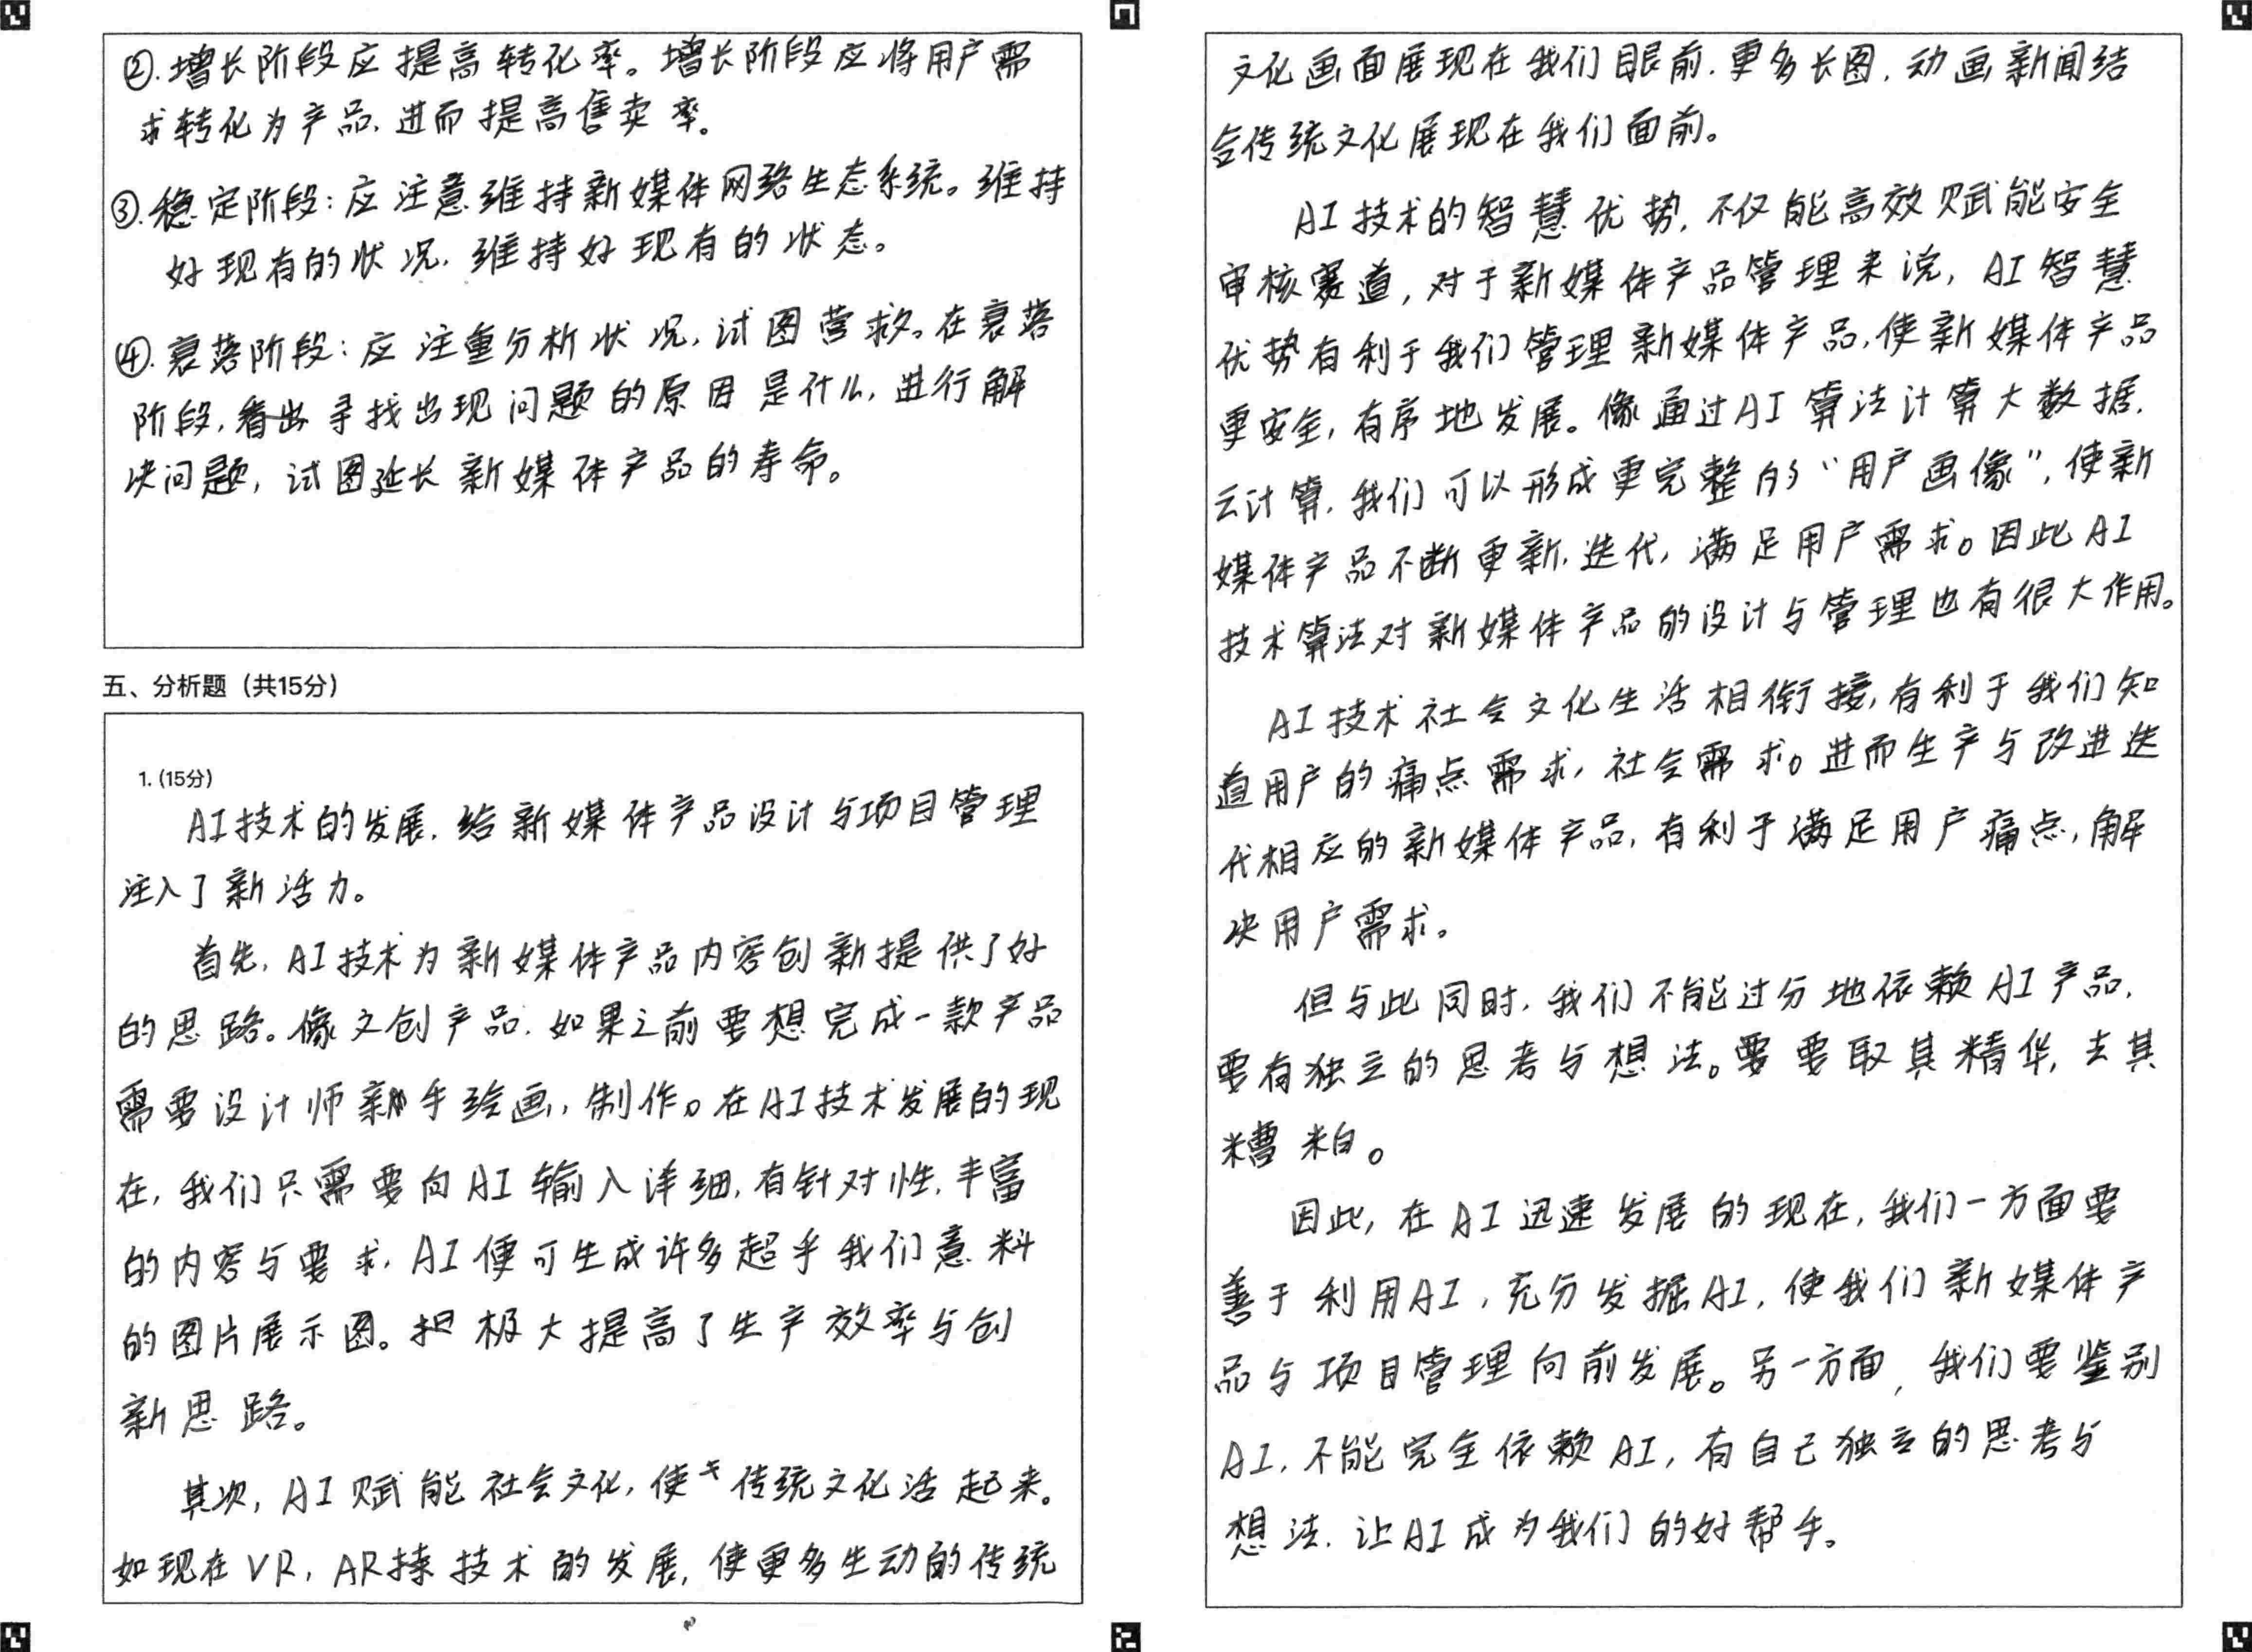 ②.增长阶段应提高转化率。增长阶段应将用户需
求转化为产品,进而提高售卖率。
③.稳定阶段:应注意维持新媒体网络生态系统。维持
好现有的状况,维持好现有的状态。
④.衰落阶段:应注重分析状况,试图营救。在衰落
阶段,寻找出现问题的原因是什么,进行解
决问题,试图延长新媒体产品的寿命。
五、分析题(共15分)
1. (15分)
AI技术的发展,给新媒体产品设计与项目管理
注入了新活力。
首先,AI技术为新媒体产品内容创新提供了好
的思路。像文创产品,如果之前要想完成一款产品
需要设计师手绘画,制作。在AI技术发展的现
在,我们只需要向AI输入详细,有针对性,丰富
的内容与要求,AI便可生成许多超乎我们意料
的图片展示图。极大提高了生产效率与创
新思路。
其次,AI赋能社会文化,使传统文化活起来。
如现在VR,AR技术的发展,使更多生动的传统
文化画面展现在我们眼前.更多长图,动画新闻结
合传统文化展现在我们面前。
AI技术的智慧优势,不仅能高效赋能安全
审核赛道,对于新媒体产品管理来说,AI智慧
优势有利于我们管理新媒体产品,使新媒体产品
更安全,有序地发展。像通过AI算法计算大数据,
云计算,我们可以形成更完整的“用户画像”,使新
媒体产品不断更新,迭代,满足用户需求。因此AI
技术算法对新媒体产品的设计与管理也有很大作用。
AI技术社会文化生活相衔接,有利于我们知
道用户的痛点需求,社会需求。进而生产与改进迭
代相应的新媒体产品,有利于满足用户痛点,解
决用户需求。
但与此同时,我们不能过分地依赖AI产品,
要有独立的思考与想法。要要取其精华,去其
糟粕。
因此,在AI迅速发展的现在,我们一方面要
善于利用AI,充分发掘AI,使我们新媒体产
品与项目管理向前发展。另一方面,我们要鉴别
AI,不能完全依赖AI,有自己独立的思考与
想法,让AI成为我们的好帮手。